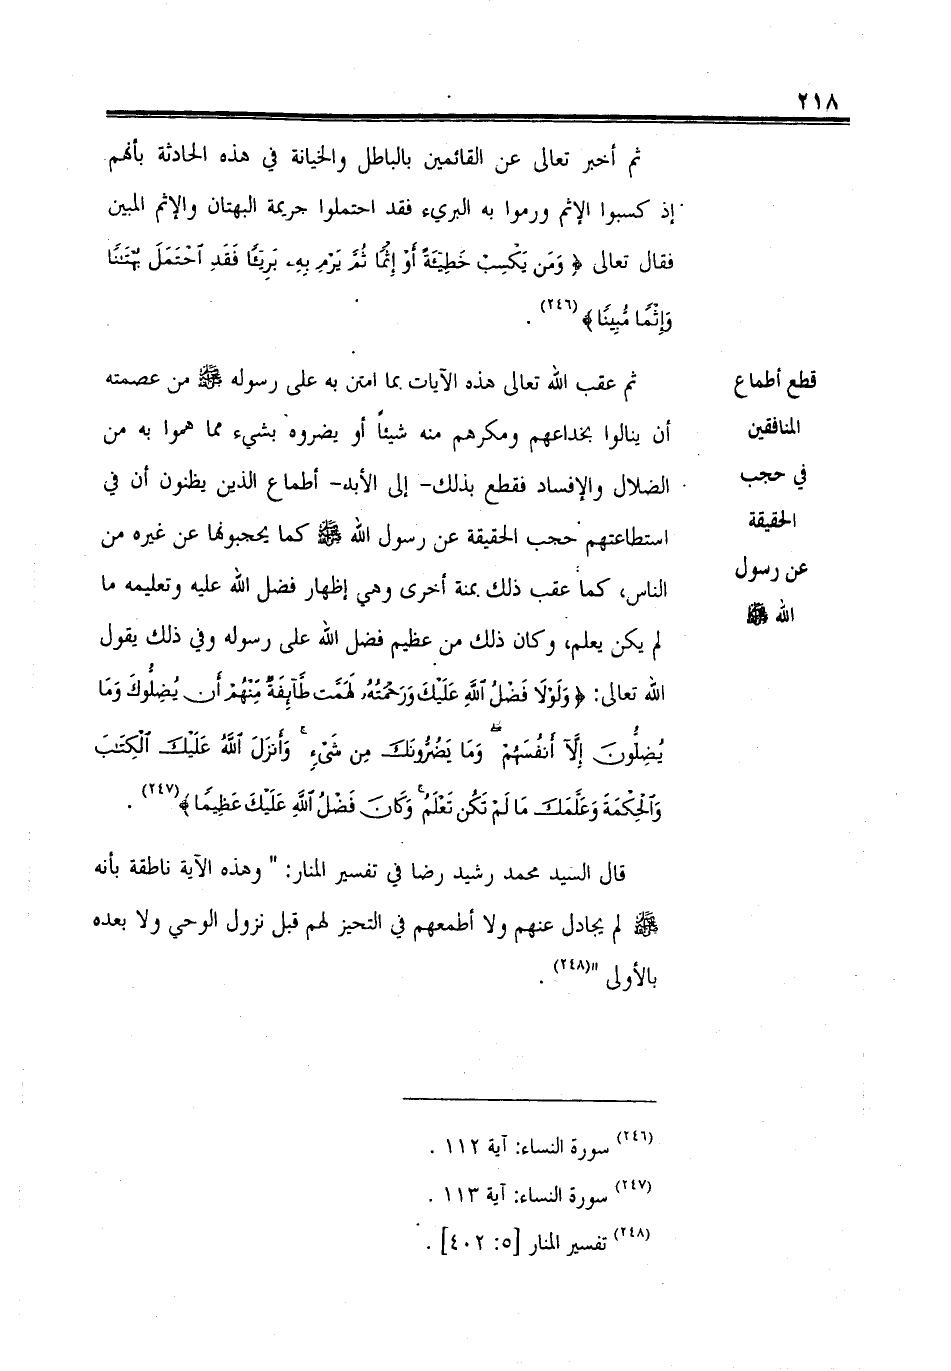 ٢١٨
ثم أخبر تعالى عن القائمين بالباطل والخيانة في هذه الحادثة بأنهم
إذ كسبوا الإثم ورموا به البريء فقد احتملوا جريمة البهتان والإثم المبين
فقال تعالى ﴿ وَمَن يَكْسِبْ خَطِيٓـَٔةً أَوْ إِثْمًا ثُمَّ يَرْمِ بِهِۦ بَرِيٓـًٔا فَقَدِ ٱحْتَمَلَ بُهْتَٰنًا
وَإِثْمًا مُّبِينًا ﴾(٢٤٦) .
قطع أطماع
المنافقين
في حجب
الحقيقة
عن رسول
الله ﷺ
ثم عقب الله تعالى هذه الآيات بما امتن به على رسوله ﷺ من عصمته
أن ينالوا بخداعهم ومكرهم منه شيئاً أو يضروه بشيء مما هموا به من
الضلال والإفساد فقطع بذلك- إلى الأبد- أطماع الذين يظنون أن في
استطاعتهم حجب الحقيقة عن رسول الله ﷺ كما يحجبونها عن غيره من
الناس، كما عقب ذلك بمنة أخرى وهي إظهار فضل الله عليه وتعليمه ما
لم يكن يعلم، وكان ذلك من عظيم فضل الله على رسوله وفي ذلك يقول
الله تعالى: ﴿ وَلَوْلَا فَضْلُ ٱللَّهِ عَلَيْكَ وَرَحْمَتُهُۥ لَهَمَّت طَّآئِفَةٌ مِّنْهُمْ أَن يُضِلُّوكَ وَمَا
يُضِلُّونَ إِلَّآ أَنفُسَهُمْ ۖ وَمَا يَضُرُّونَكَ مِن شَىْءٍ ۚ وَأَنزَلَ ٱللَّهُ عَلَيْكَ ٱلْكِتَٰبَ
وَٱلْحِكْمَةَ وَعَلَّمَكَ مَا لَمْ تَكُن تَعْلَمُ ۚ وَكَانَ فَضْلُ ٱللَّهِ عَلَيْكَ عَظِيمًا ﴾(٢٤٧) .
قال السيد محمد رشيد رضا في تفسير المنار: " وهذه الآية ناطقة بأنه
ﷺ لم يجادل عنهم ولا أطمعهم في التحيز لهم قبل نزول الوحي ولا بعده
بالأولى "(٢٤٨) .
(٢٤٦) سورة النساء: آية ١١٢ .
(٢٤٧) سورة النساء: آية ١١٣ .
(٢٤٨) تفسير المنار [٥: ٤٠٢] .